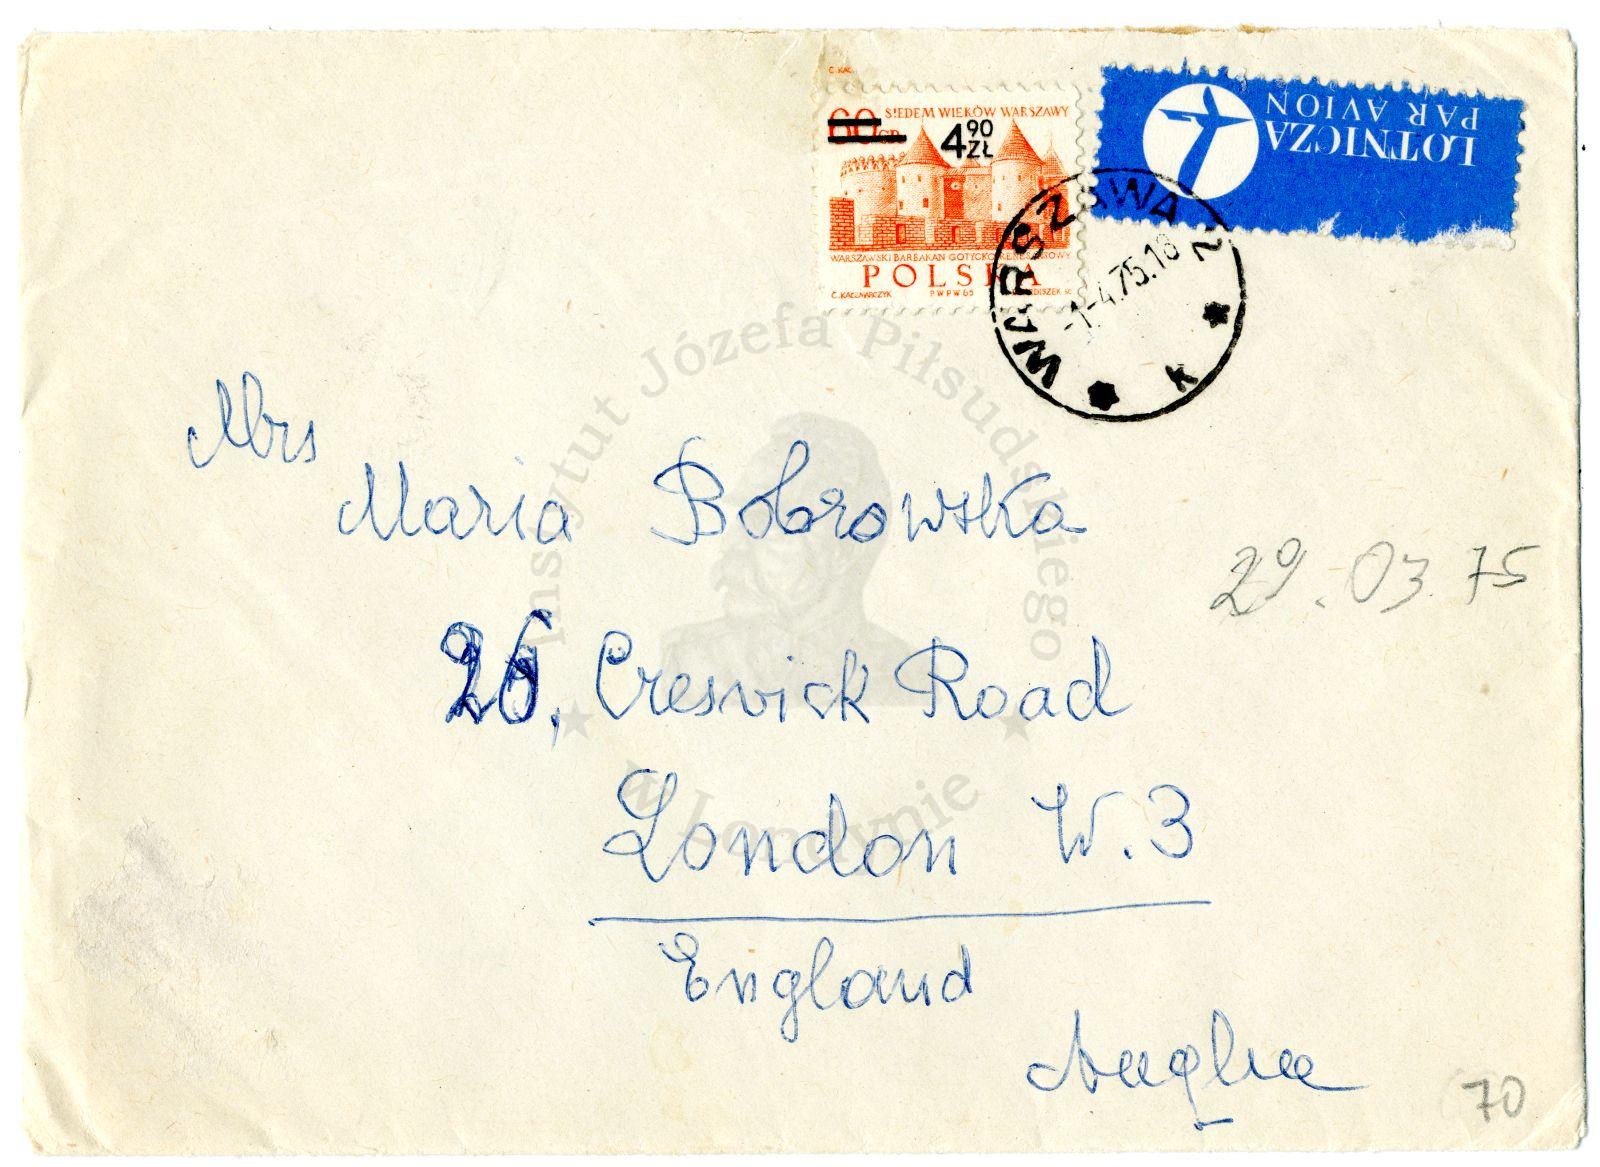 C. KAC.
60 GR
SIEDEM WIEKÓW WARSZAWY
4 90 ZŁ
WARSZAWSKI BARBAKAN GOTYCKO-RENESANSOWY
POLSKA
C. KACZMARCZYK PWPW 65
LOTNICZA
PAR AVION
WARSZAWA 2
-1-4.75.18
k
Mrs
Maria Bobrowska
29.03.75
26, Creswick Road
London W.3
England
Anglia
70
Instytut Józefa Piłsudskiego
w Londynie